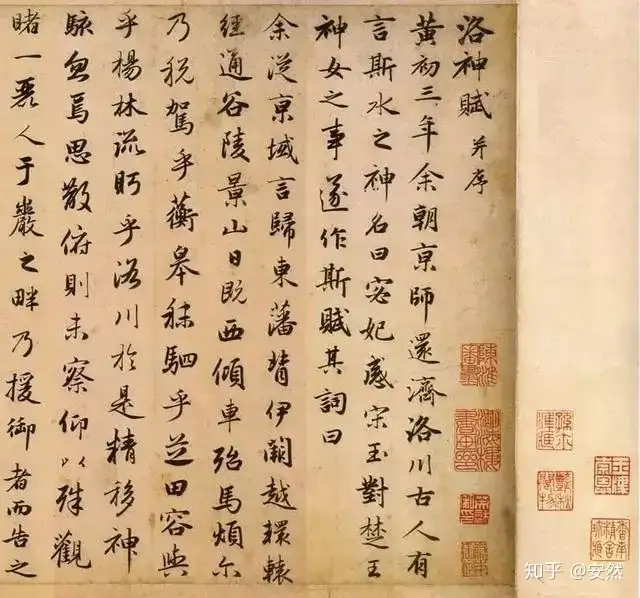 洛神賦 并序
黃初三年余朝京師還濟洛川古人有
言斯水之神名曰宓妃感宋玉對楚王
神女之事遂作斯賦其詞曰
余從京域言歸東藩背伊闕越轘轅
經通谷陵景山日既西傾車殆馬煩尓
乃稅駕乎蘅皋秣駟乎芝田容與
乎楊林流眄乎洛川於是精移神
駭忽焉思散俯則未察仰以殊觀
睹一麗人于巖之畔乃援御者而告之
知乎 @安然